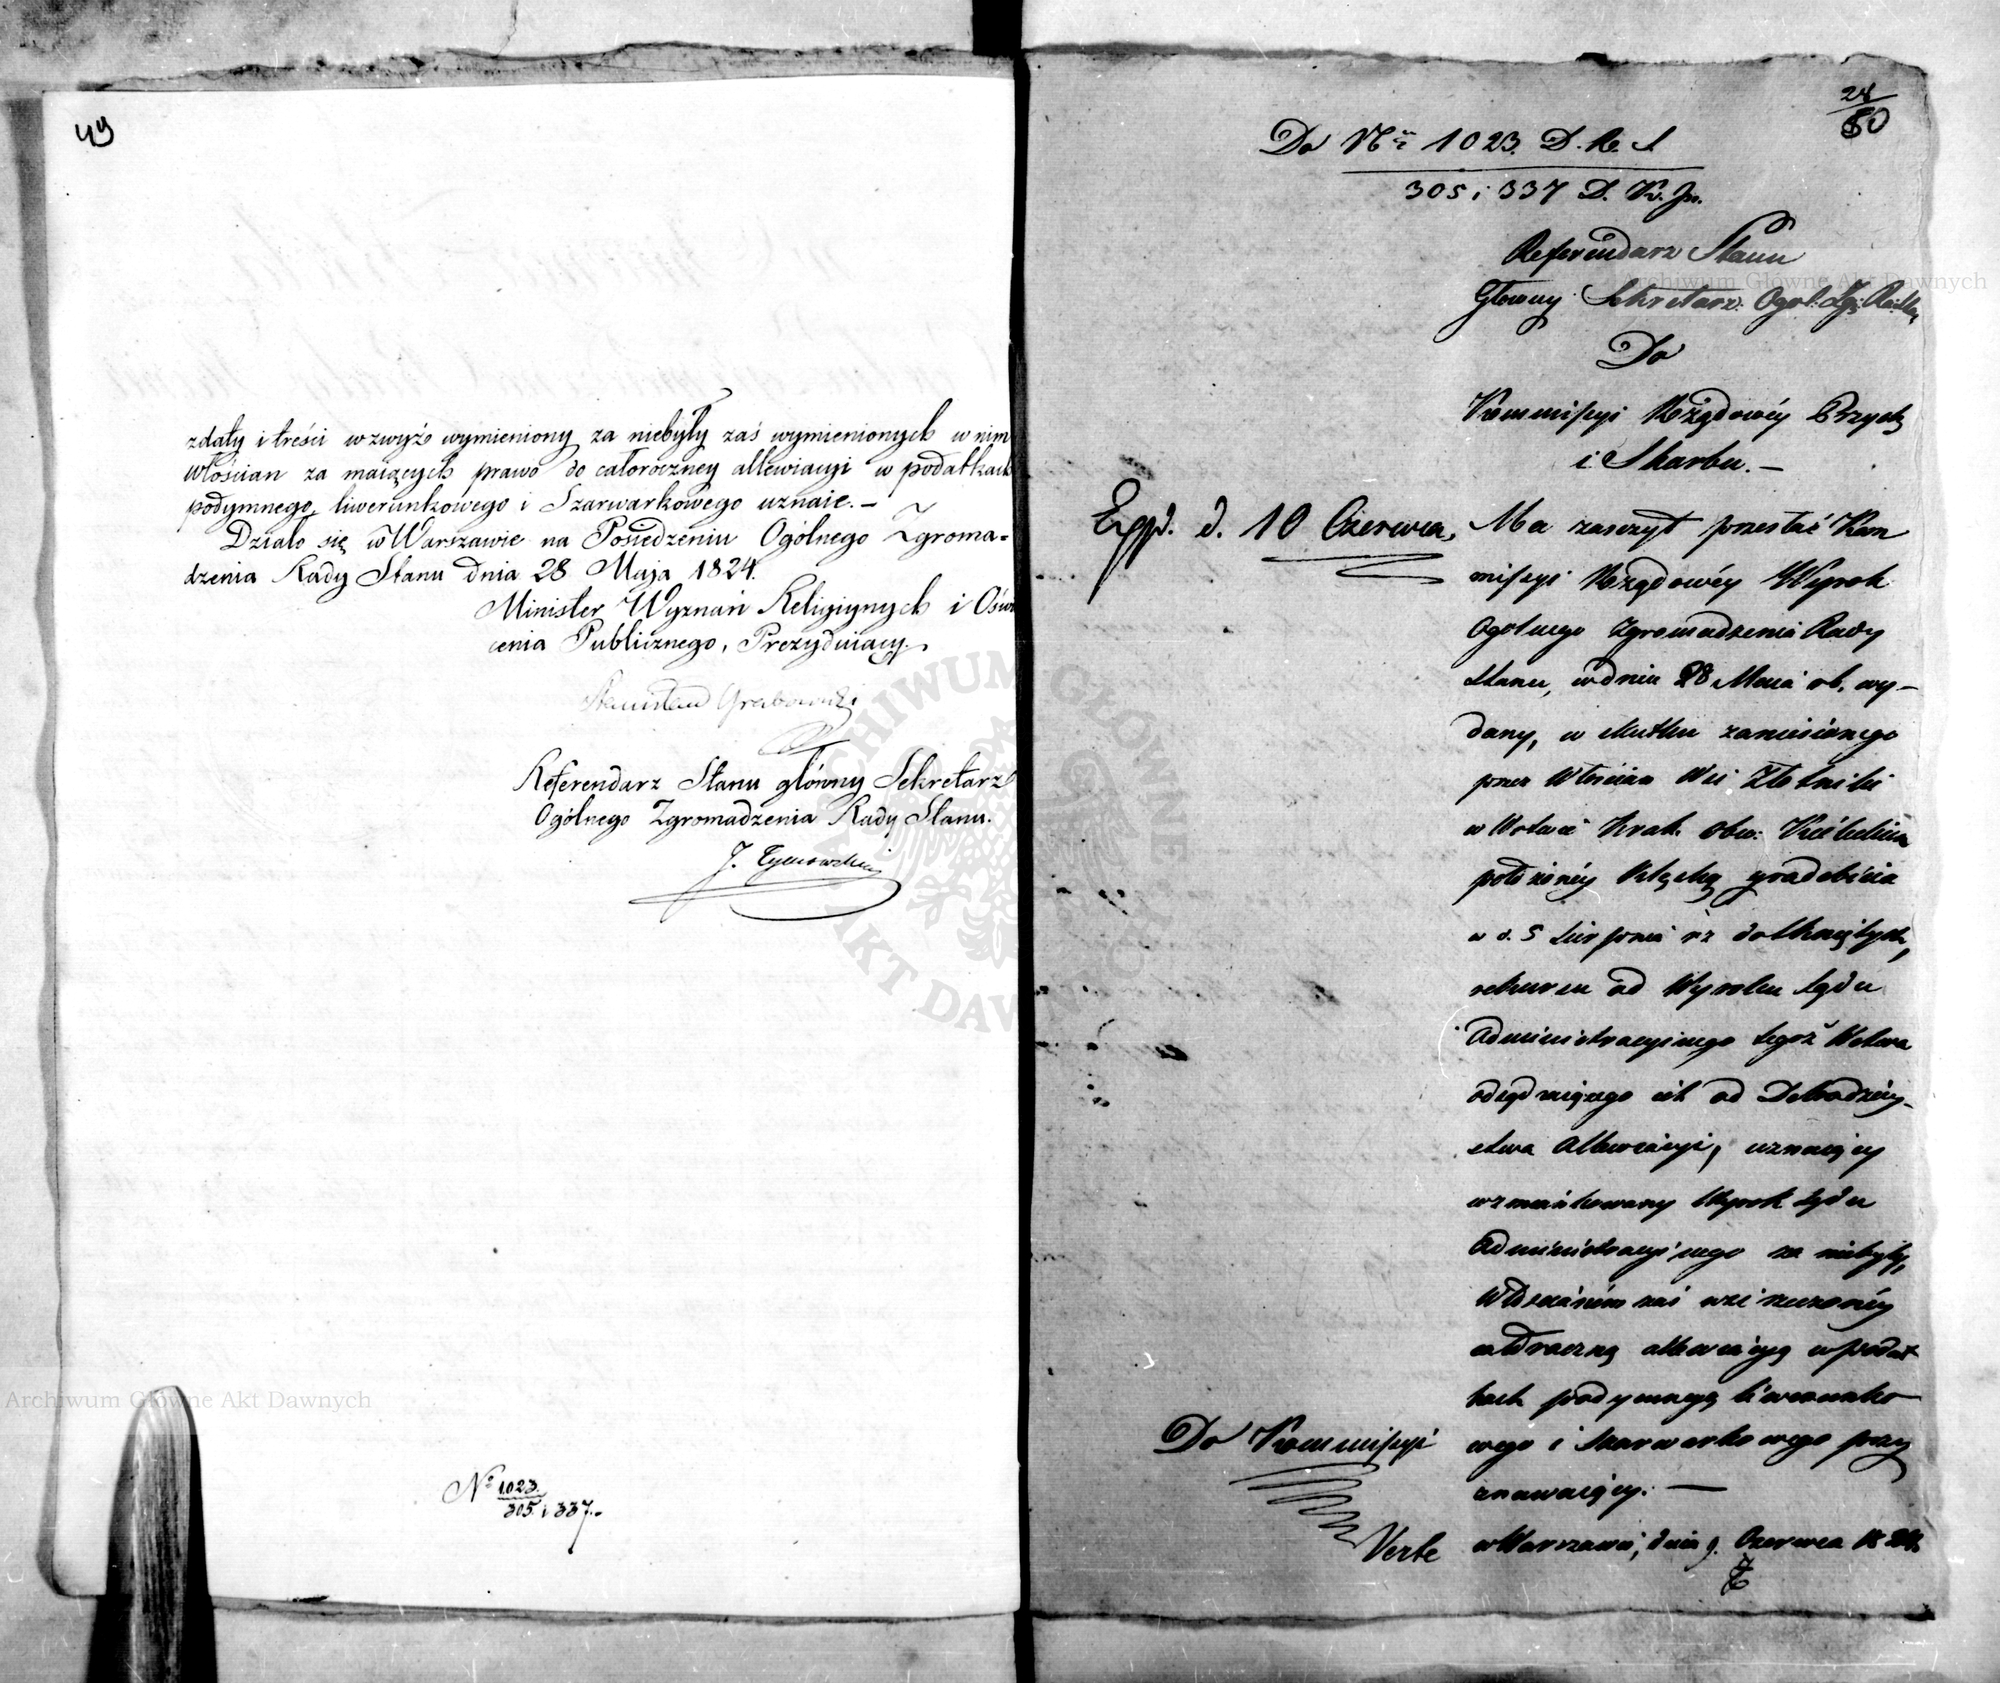 49
zdały i treści wzwyż wymieniony za niebyły zaś wymienionych w nim
Włościan za maiących prawo do całoroczney allewiacyi w podatkach
podymnego, liwerunkowego i Szarwarkowego uznaie. –
Działo się w Warszawie na Posiedzeniu Ogólnego Zgroma=
dzenia Rady Stanu dnia 28 Maja 1824.
Minister Wyznań Religiynych i Oświe
cenia Publicznego, Prezyduiący.
Stanisław Grabowski
Referendarz Stanu główny Sekretarz
Ogólnego Zgromadzenia Rady Stanu.
J. Tymowski
No 1023.
305. i 337.
28
50
Do Nru 1023. D. R. S.
305 i 337 D. K. Jn.
Referendarz Stanu
Główny Sekretarz Ogol: Zg: Ra: Stanu
Do
Kommissyi Rządowéy Przych
i Skarbu. –
Exp. d. 10 Czerwca.
Ma zaszczyt przesłać Kom
missyi Rządowéy Wyrok
Ogolnego Zgromadzenia Rady
Stanu, w dniu 28 Maia rb. wy–
dany, w skutku zaniesionego
przez Włościan Wsi Złotniki
w Woiewó Krak. Obw: Kieleckim
położonéy klęską gradobicia
w d. 5 Sierpnia rz dotkniętych,
rekursu od Wyroku Sądu
Administracyinego tegoż Wotwa
odsądzaiącego ich od Dobrodziey–
stwa Allewiacyi, uznaiący
wzmiankowany Wyrok Sądu
Administracyinego za niebyły,
Włościanom zaś wsi rzeczonéy
całoroczną allewiacyą w podat
kach podymnego liwerunko
wego i Szarwarkowego przy
znawaiący. —
w Warszawie, dnia 9. Czerwca 1824.
Do Kommissyi
Verte
Archiwum Główne Akt Dawnych
Archiwum Główne Akt Dawnych
ARCHIWUM GŁÓWNE AKT DAWNYCH